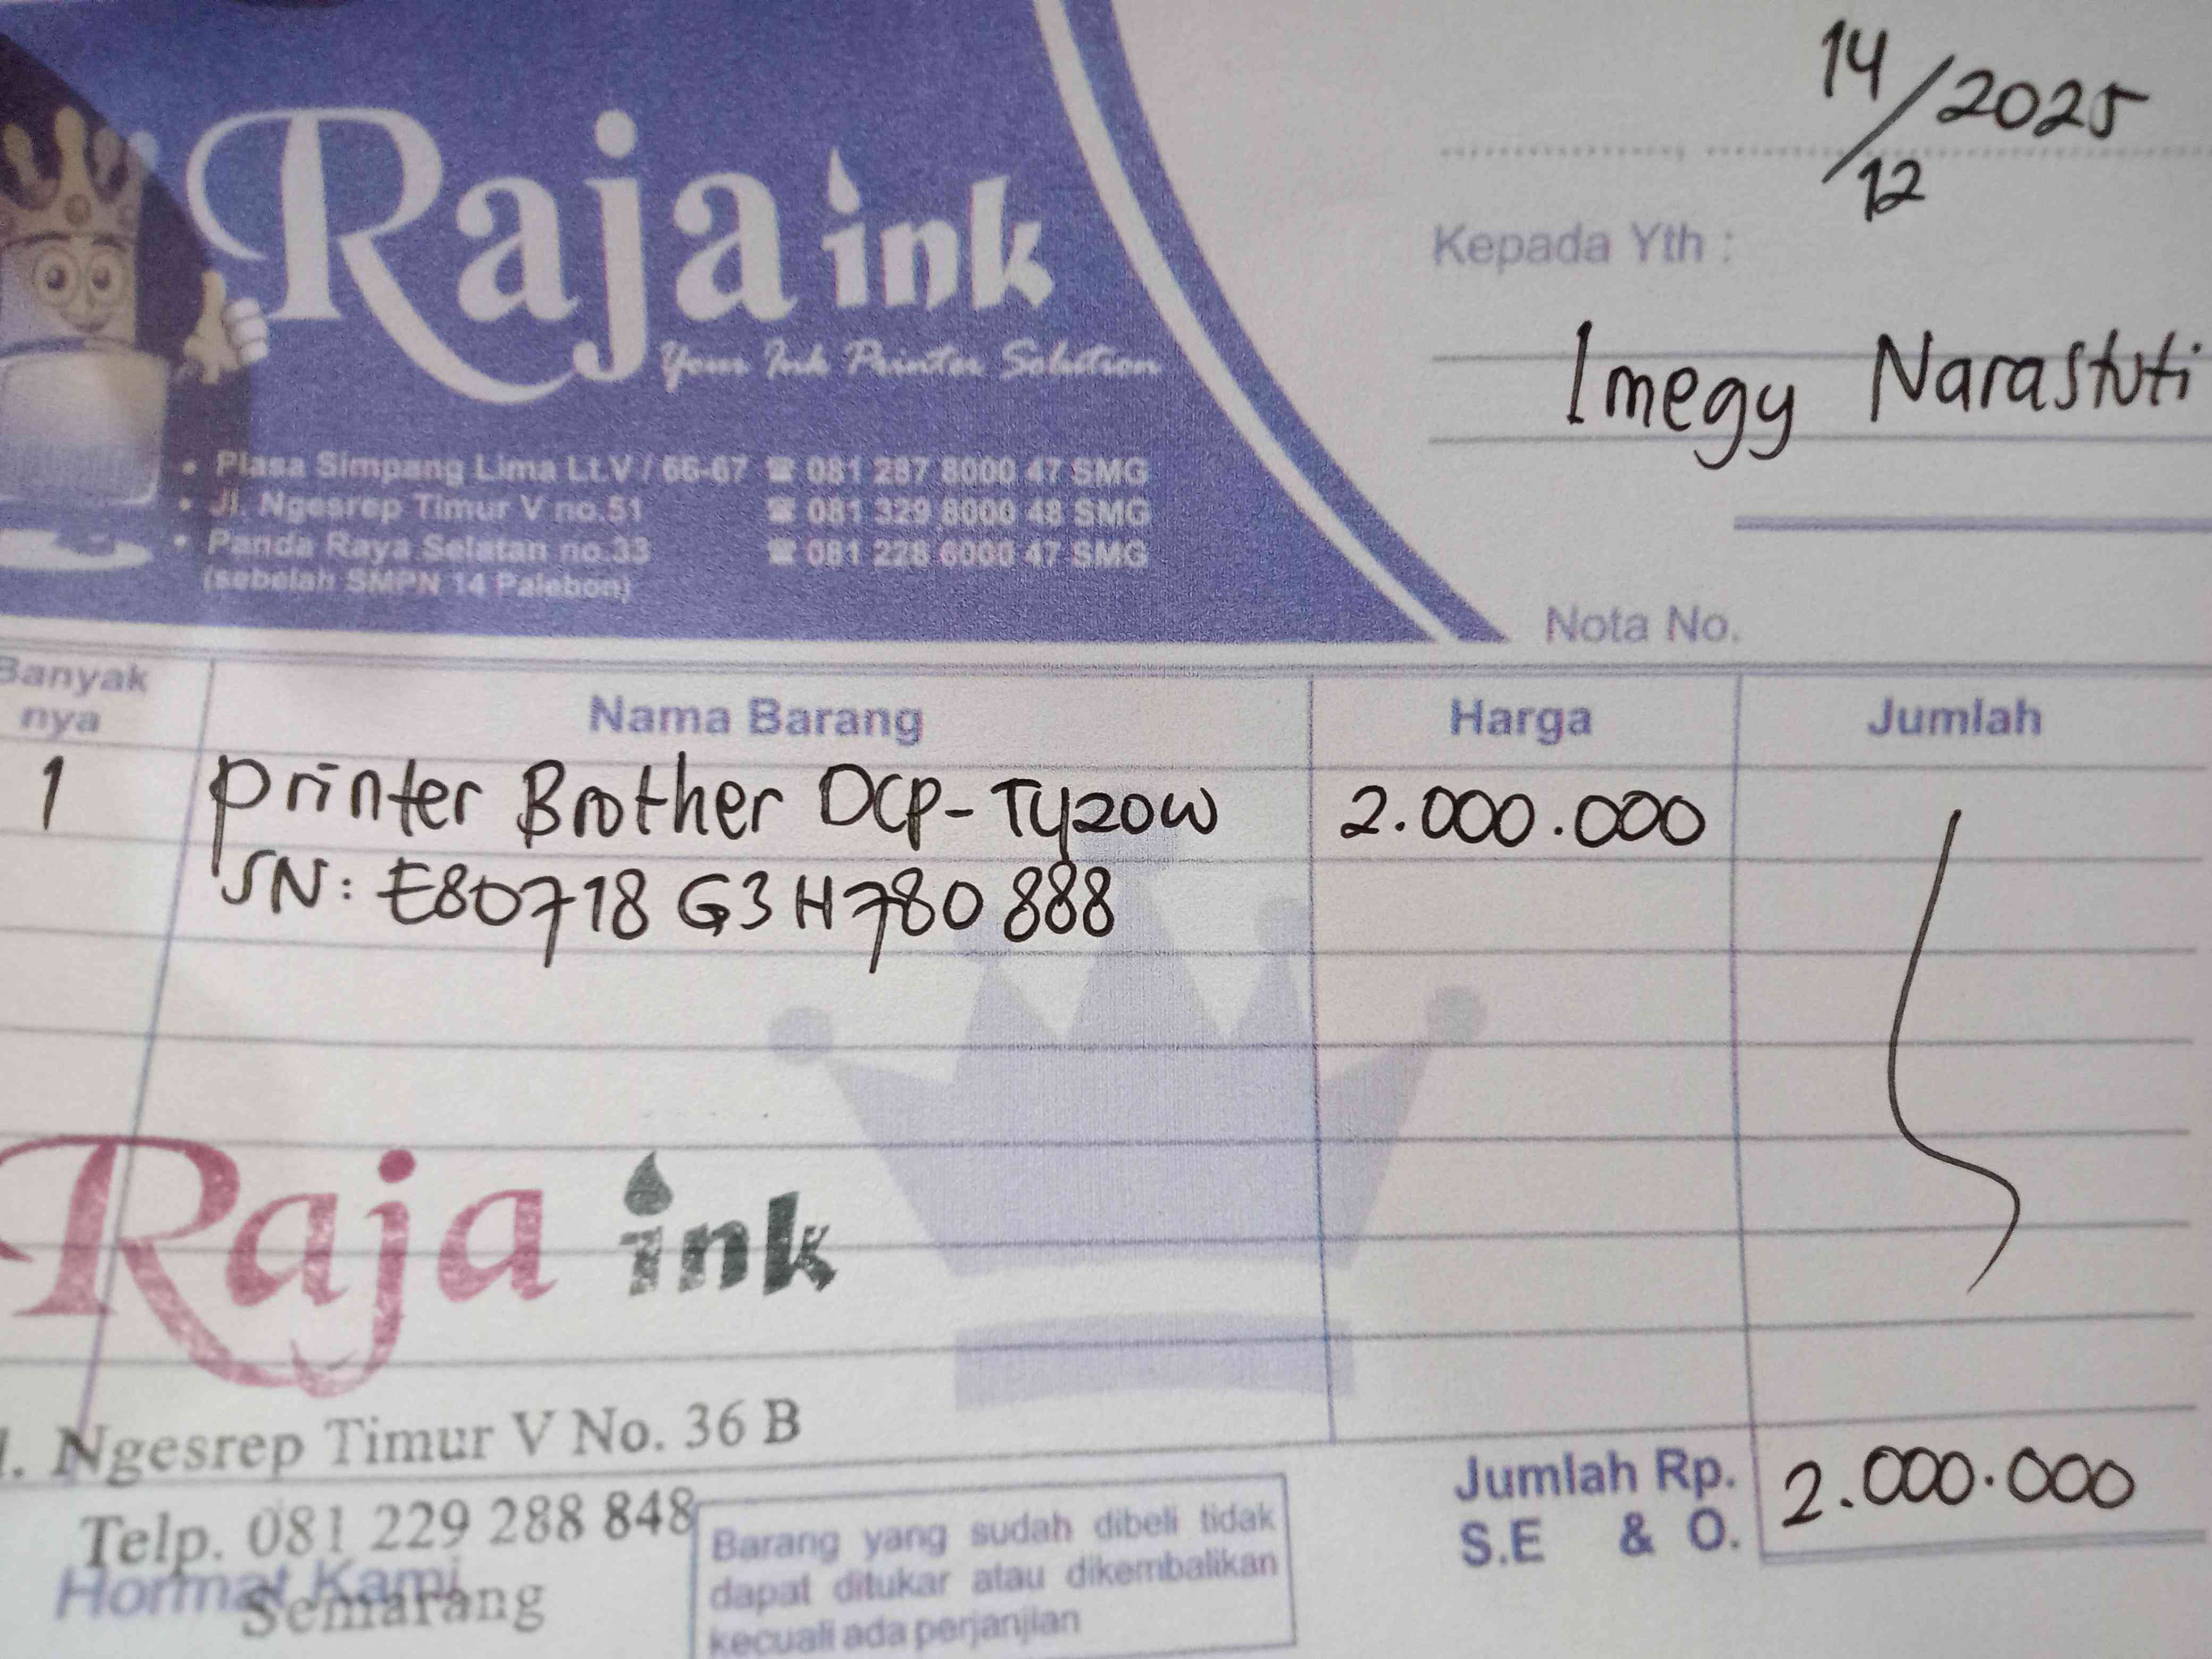 Raja ink
Your Ink Printer Solution
• Plasa Simpang Lima Lt.V / 66-67 ☎ 081 287 8000 47 SMG
• Jl. Ngesrep Timur V no.51 ☎ 081 329 8000 48 SMG
• Panda Raya Selatan no.33 ☎ 081 228 6000 47 SMG
(sebelah SMPN 14 Palebon)
14/12/2025
Kepada Yth :
Imegy Narastuti
Nota No.
Banyak nya Nama Barang Harga Jumlah
1 Printer Brother DCP-T420W 2.000.000
SN: E80718G3H780888
Raja ink
l. Ngesrep Timur V No. 36 B
Telp. 081 229 288 848
Semarang
Hormat Kami
Barang yang sudah dibeli tidak
dapat ditukar atau dikembalikan
kecuali ada perjanjian
Jumlah Rp. 2.000.000
S.E & O.